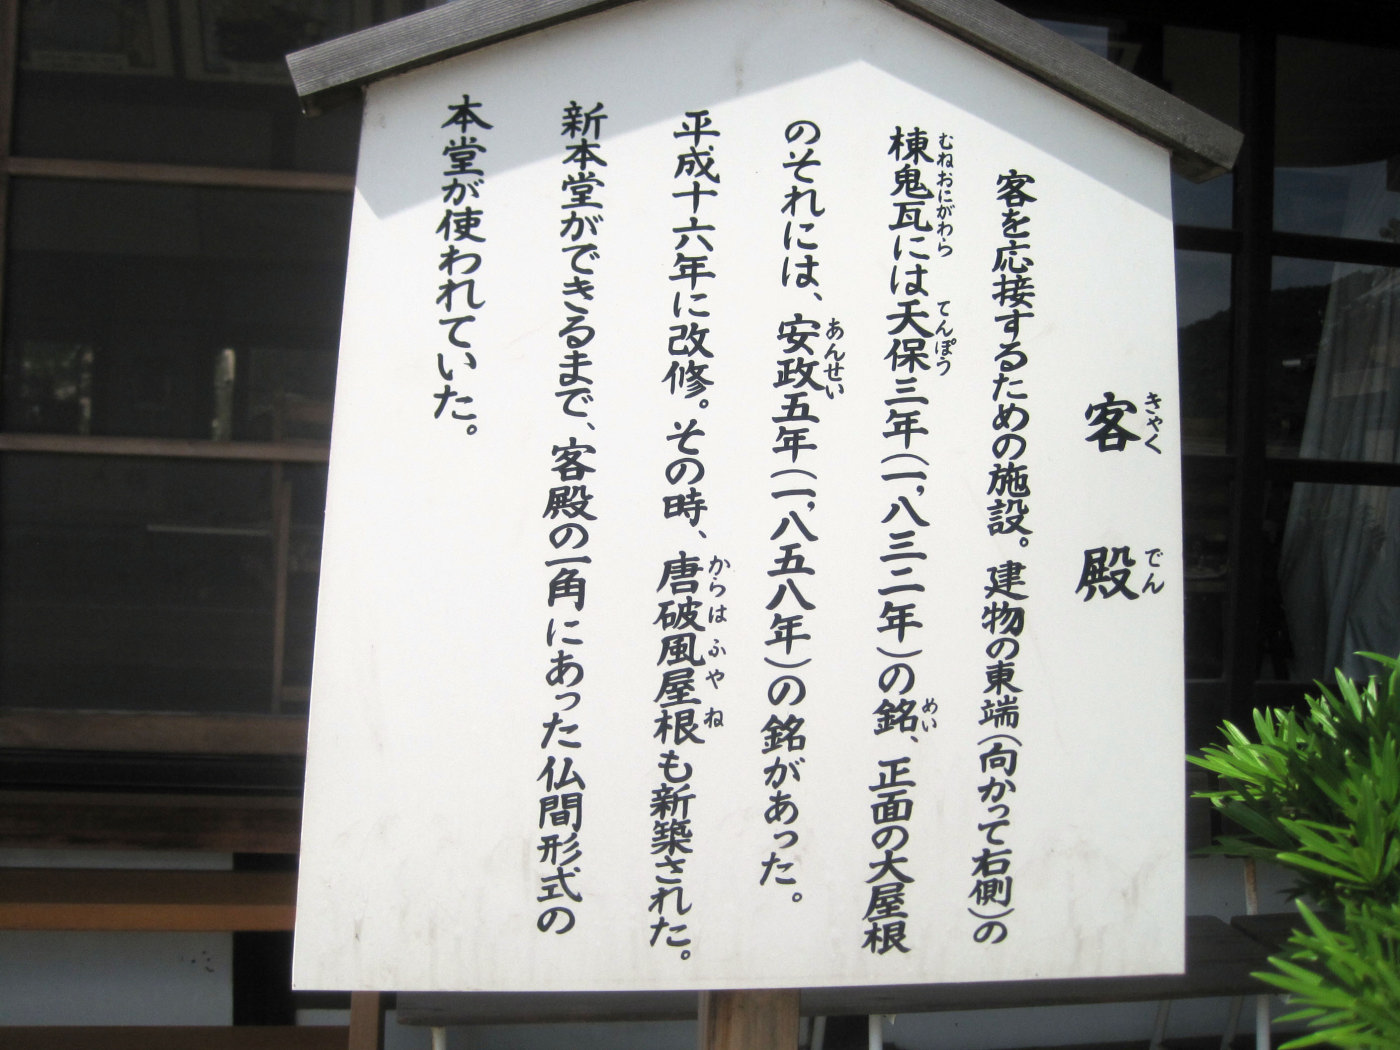 客殿
きゃくでん
客を応接するための施設。建物の東端(向かって右側)の
棟鬼瓦には天保三年(一,八三二年)の銘、正面の大屋根
むねおにがわら てんぽう めい
のそれには、安政五年(一,八五八年)の銘があった。
あんせい
平成十六年に改修。その時、唐破風屋根も新築された。
からはふやね
新本堂ができるまで、客殿の一角にあった仏間形式の
本堂が使われていた。